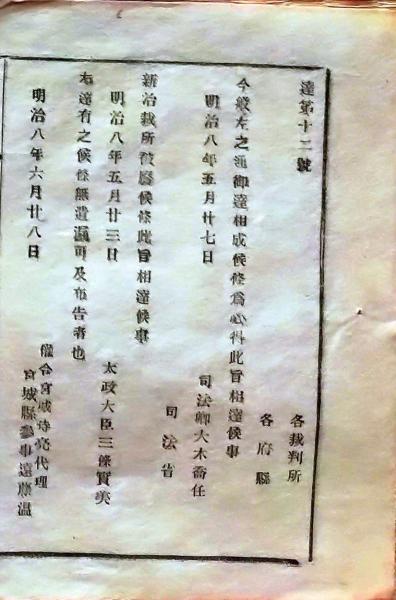 達第十二號
各裁判所
各府縣
今般左之通御達相成候條為心得此旨相達候事
明治八年五月廿七日
司法卿大木喬任
司法省
新治裁所被廢候條此旨相達候事
明治八年五月廿三日
太政大臣三條實美
右達有之候條無遺漏可及布告者也
明治八年六月廿八日
權令宮城時亮代理
宮城縣參事遠藤溫